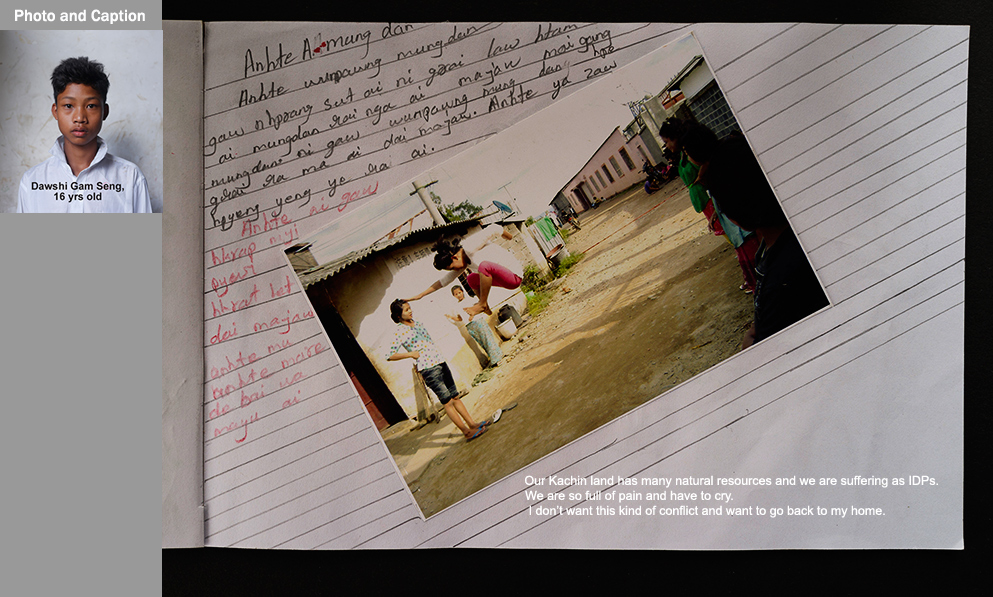 Photo and Caption
Dawshi Gam Seng,
16 yrs old
Anhte A mung dan
Anhte wunpawng mungdan
gaw nhprang sut ai ni grai law htam
ai mungdan rai nga ai majaw mai gang
mungdan ni gaw wunpawng mung dan hpe
grai ra ma ai dai majaw. Anhte ya zaw
hpyeng yeng ya hkrum ai.
Anhte ni gaw
hkrap
hkrat
dai majaw
anhte mu
anhte mare
de bai wa
mayu ai
Our Kachin land has many natural resources and we are suffering as IDPs.
We are so full of pain and have to cry.
I don't want this kind of conflict and want to go back to my home.